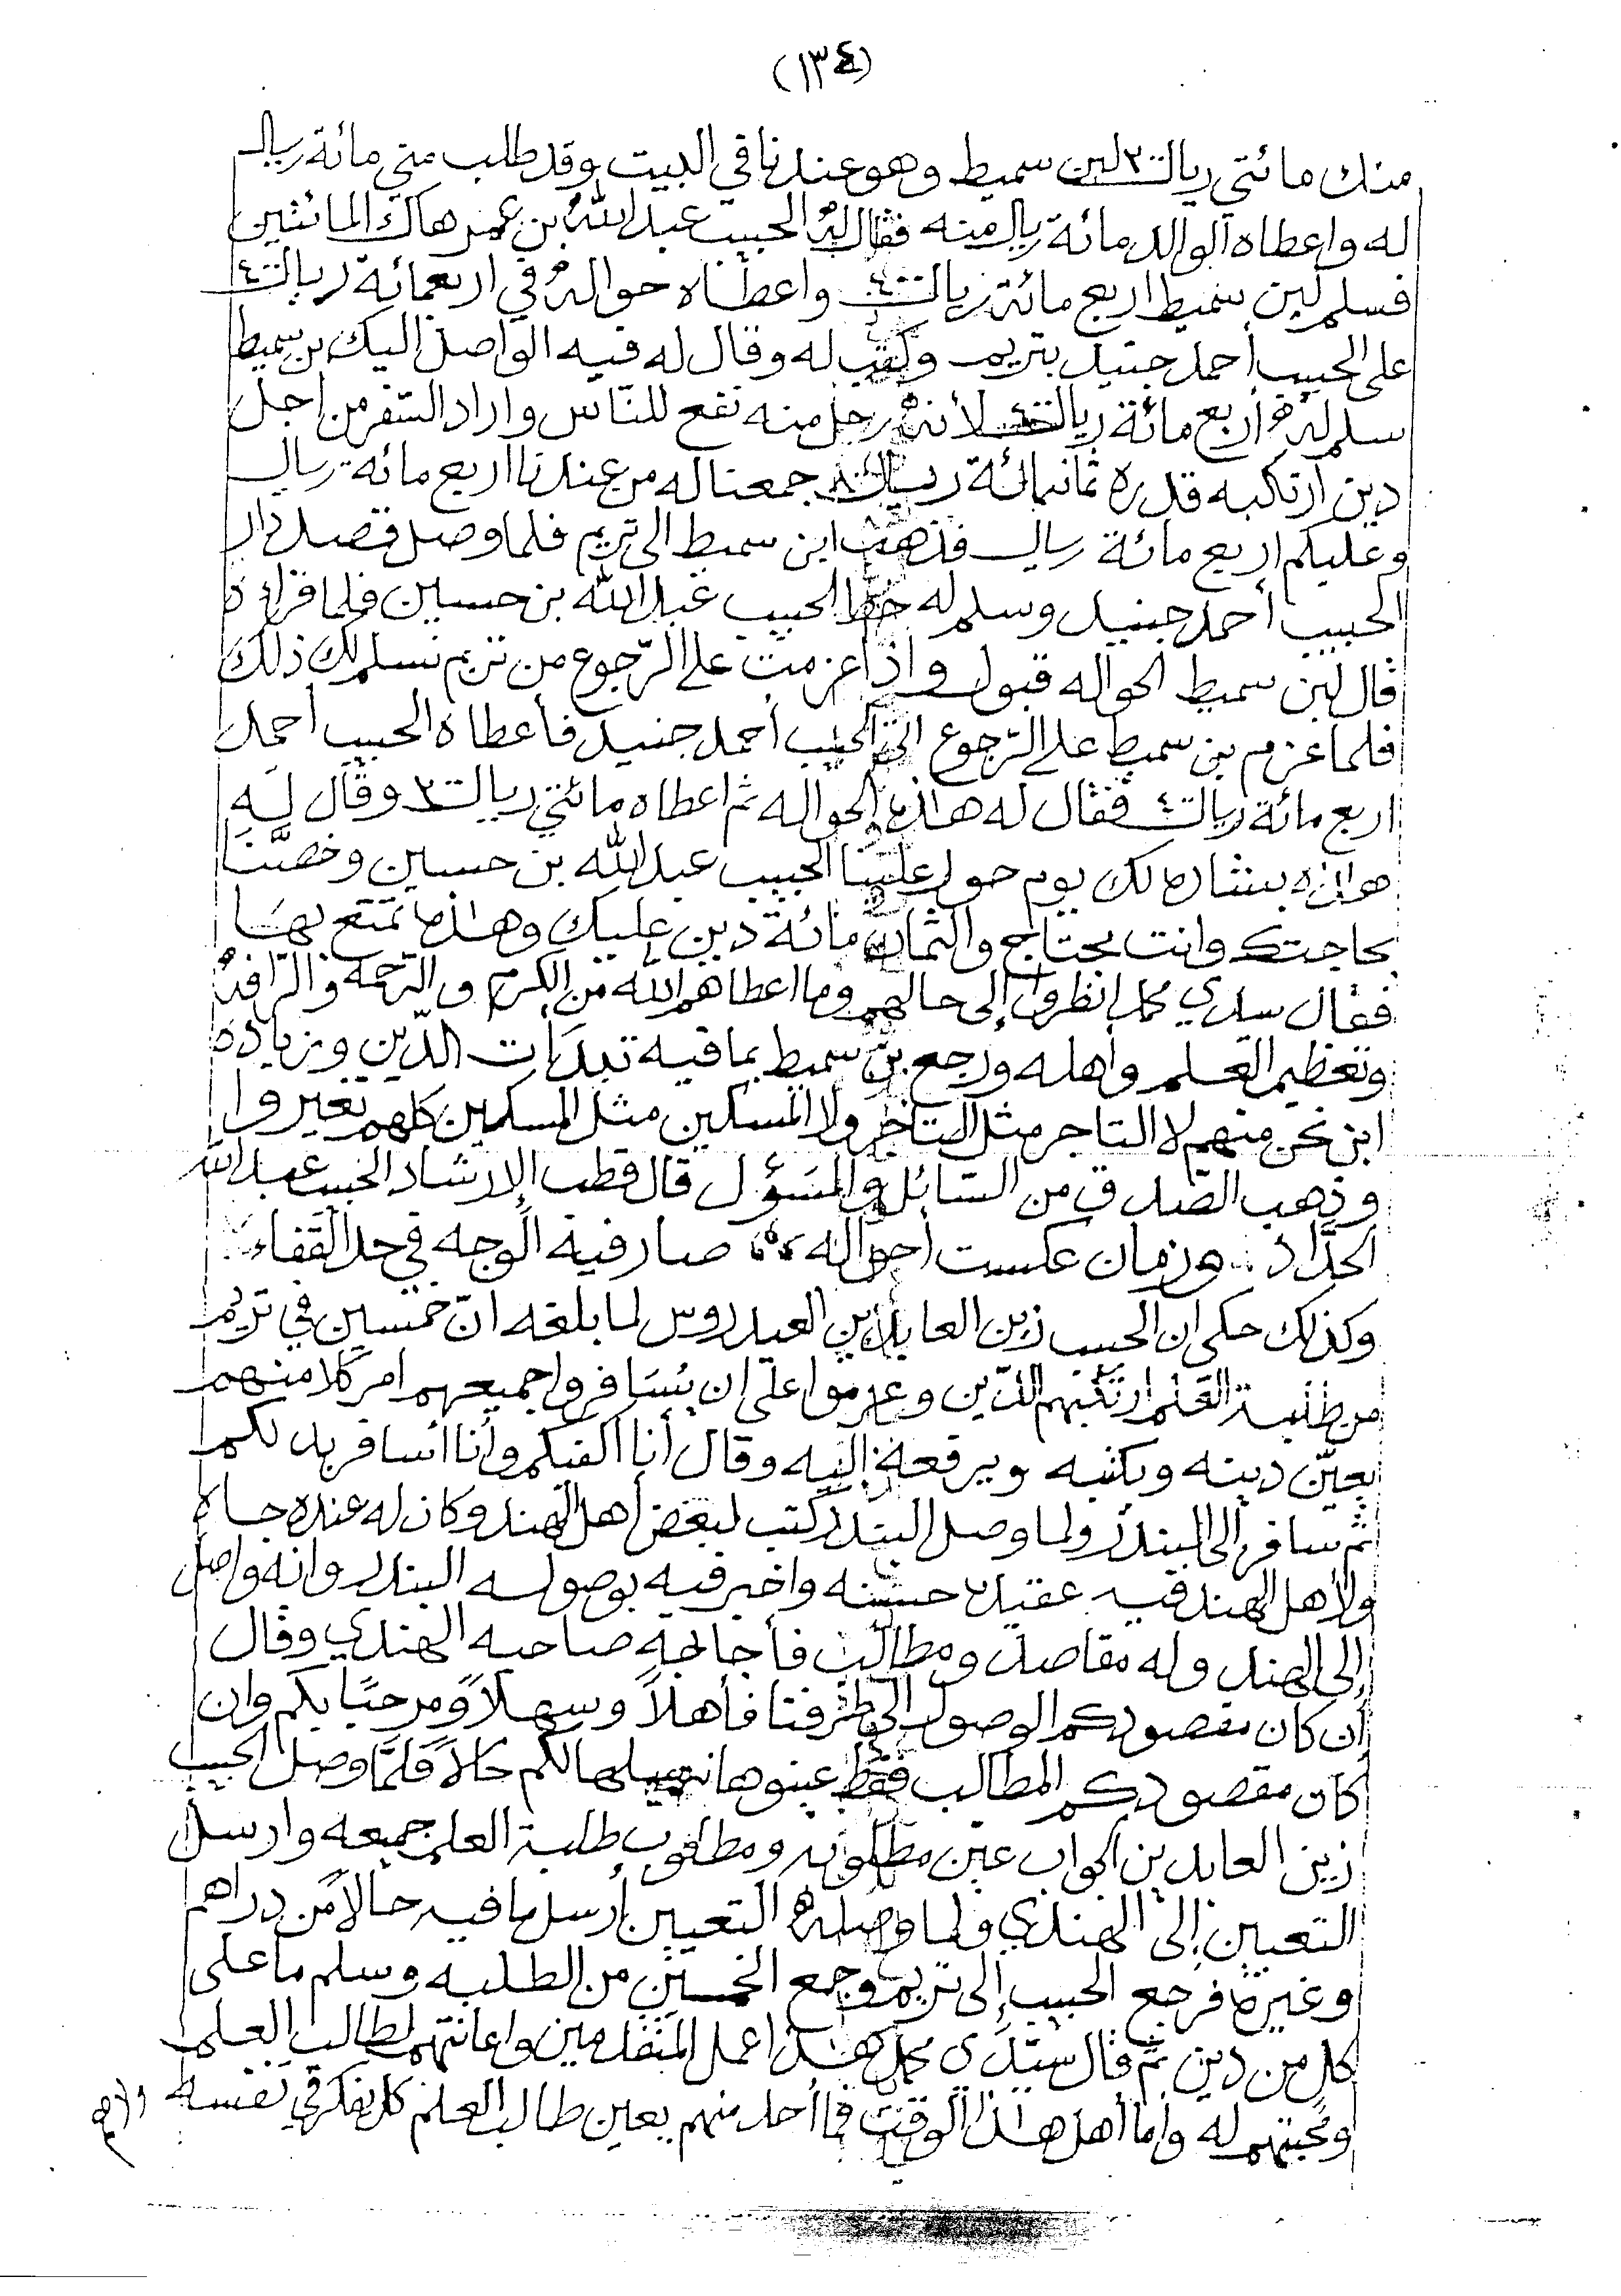 (١٣٤)
منك مائتي ريال ٢٠٠ لبن سميط وهو عندنا في البيت وقد طلب مني مائة ريال
له واعطاه الوالد مائة ريال منه فقال له الحبيب عبد الله بن عمر هاك المائتين
فسلم لبن سميط اربع مائة ريال ٤٠٠ واعطاه حواله في اربعمائة ريال ٤٠٠
على الحبيب أحمد جنيد بتريم وكتب له وقال له فيه الواصل اليك بن سميط
سلم له أربع مائة ريال ٤٠٠ لأنه رجل منه نفع للناس واراد السفر من اجل
دين ارتكبه قدره ثمانمائة ريال ٨٠٠ جمعنا له من عندنا اربع مائة ريال
وعليكم اربع مائة ريال فذهب ابن سميط الى تريم فلما وصل قصد دار
الحبيب أحمد جنيد وسلم له خط الحبيب عبد الله بن حسين فلما قراءة
قال لبن سميط الحواله قبول واذا عزمت على الرجوع من تريم نسلم لك ذلك
فلما عزم بن سميط على الرجوع اتى الحبيب أحمد جنيد فأعطاه الحبيب أحمد
اربع مائة ريال ٤٠٠ فقال له هذه الحواله ثم اعطاه مائتي ريال ٢٠٠ وقال له
هوانه بشاره لك يوم حول علينا الحبيب عبد الله بن حسين وخصنا
بحاجتك وانت محتاج والثمان مائة دين عليك وهذه تمتع بها
فقال سيدي محمد انظروا إلى حالهم وما اعطاهم الله من الكرم والرحمة والرافة
وتعظيم العلم وأهله ورجع بن سميط بما فيه تبدات الدين وزيادة
اين نحن منهم لا التاجر مثل التاجر ولا المسكين مثل المسكين كلهم تغيروا
وذهب الصدق من السائل والمسؤل قال قطب الإرشاد الحبيب عبد الله
الحداد .. وزمان عكست أحواله صار فيه الوجه في حد القفاء
وكذلك حكى ان الحبيب زين العابدين العيدروس لما بلغه ان خمسين في تريم
من طلبة العلم ارتكبهم الدين وعزموا على ان يسافروا جميعهم امر كلا منهم
يعين دينه ويكتبه ويرفعه إليه وقال أنا أكفيكم وأنا أسافر بدلكم
ثم سافر الى البندر ولما وصل البندر كتب لبعض أهل الهند وكان له عنده جاه
ولأهل الهند فيه عقيده حسنه واخبر فيه بوصوله البندر وانه واصل
إلى الهند وله مقاصد ومطالب فأجابه صاحبه الهندي وقال
إن كان مقصودكم الوصول الى طرفنا فأهلاً وسهلاً ومرحبًا بكم وان
كان مقصودكم المطالب فقط عينوها نرسلها لكم حالاً فلما وصل الحبيب
زين العابدين الجواب عين مطلوبه ومطلوب طلبة العلم جميعه وارسل
التعيين إلى الهندي ولما وصله التعيين أرسل ما فيه حالاً من دراهم
وغيرها فرجع الحبيب إلى تريم وجمع الخمسين من الطلبه وسلم ما على
كل من دين ثم قال سيدي محمد هذا اعمل المتقدمين واعانتهم لطالب العلم
ومحبتهم له وأما أهل هذا الوقت فما أحد منهم يعين طالب العلم كل يفكر في نفسه